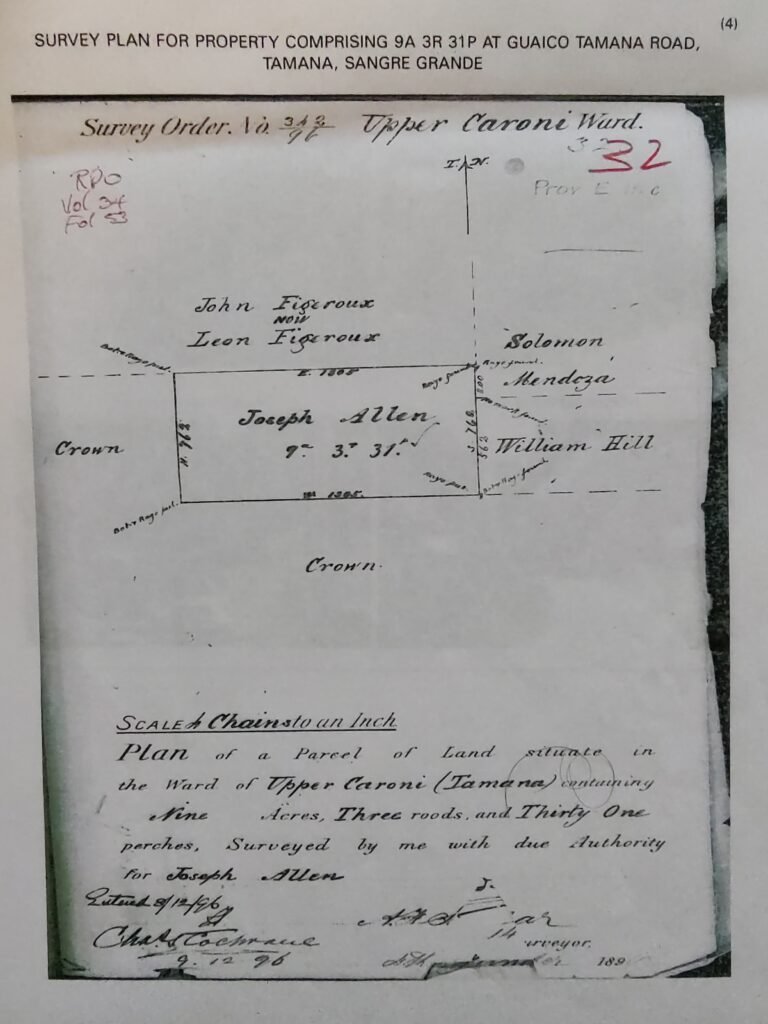 (4)
SURVEY PLAN FOR PROPERTY COMPRISING 9A 3R 31P AT GUAICO TAMANA ROAD,
TAMANA, SANGRE GRANDE
Survey Order. No. 343/96 Upper Caroni Ward.
32
32
T. N.
RPO
Vol 34
Fol 53
Prov E
John Figeroux
NOW
Leon Figeroux
Solomon
Mendoza
E. 1305
200
Joseph Allen
9a 3r 31p
N. 762
S. 762
562
Crown
William Hill
W 1305.
Crown.
SCALE 4 Chains to an Inch
Plan of a Parcel of Land situate in
the Ward of Upper Caroni (Tamana) containing
Nine Acres, Three roods, and Thirty One
perches, Surveyed by me with due Authority
for Joseph Allen
Entered 8/12/96
Chas Cochrane
9. 12 96
14
urveyor.
189